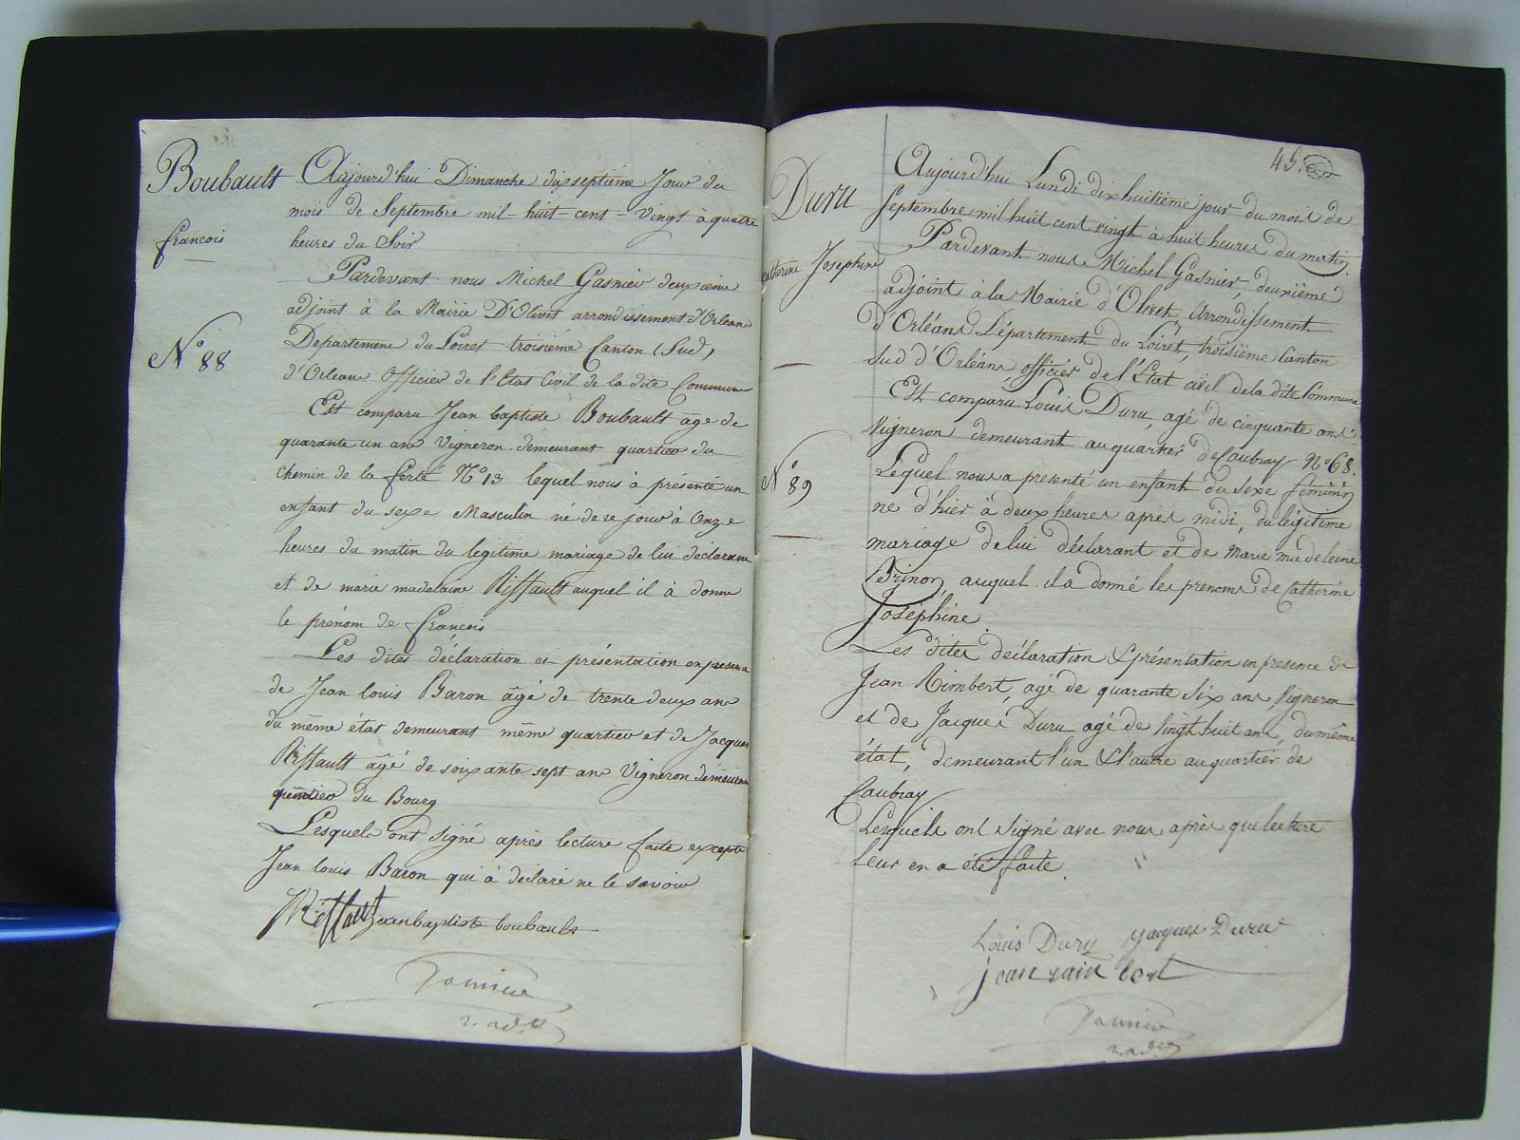 Boubault
francois
N° 88
Aujourd'hui Dimanche dix septieme Jour du
mois de Septembre mil-huit-cent-vingt à quatre
heures du Soir
Pardevant nous Michel Gasnier deuxieme
adjoint à la Mairie D'Olivet arrondissement d'Orleans
Departement du Loiret troisième Canton (Sud)
d'Orleans Officier de l'Etat Civil de la dite Commune
Est comparu Jean baptiste Boubault âgé de
quarante un ans Vigneron demeurant quartier du
chemin de la ferté N° 13 lequel nous à présenté un
enfant du sexe Masculin né de ce jour à Onze
heures du matin du legitime mariage de lui declarant
et de marie madelaine Riffault auquel il à donné
le prénom de francois
Les dites déclaration et présentation en presence
de Jean louis Baron âgé de trente deux ans
du même état demeurant même quartier et de Jacques
Riffault âgé de soixante sept ans Vigneron demeurant
quartier du Bourg
Lesquels ont signé après lecture faite excepté
Jean louis Baron qui à déclaré ne le savoir
JRiffault Jean baptiste boubault
2. adjt
45.
Duru
Catherine Josephine
N° 89
Aujourd'hui Lundi dix huitième jour du mois de
Septembre mil huit cent vingt à huit heures du matin.
Pardevant nous Michel Gasnier, deuxième
adjoint à la Mairie d'Olivet, Arrondissement
d'Orléans Département du Loiret, troisième Canton
Sud d'Orléans officier de l'État civil de la dite Commune
Est comparu Louis Duru, agé de cinquante ans
Vigneron demeurant au quartier de Caubray N° 68.
Lequel nous a presenté un enfant du sexe féminin
né d'hier à deux heures après midi, du légitime
mariage de lui déclarant et de Marie madeleine
Brinon, auquel il a donné les prenoms de Catherine
Joséphine.
Les dites déclaration & présentation en presence de
Jean Rimbert, agé de quarante six ans Vigneron
et de Jacques Duru agé de vingt huit ans, du même
état, demeurant l'un & l'autre au quartier de
Caubray
Lesquels ont signé avec nous après que lecture
leur en a été faite.
Louis Dury Jacques Duru
jean rain bert
2. adjt